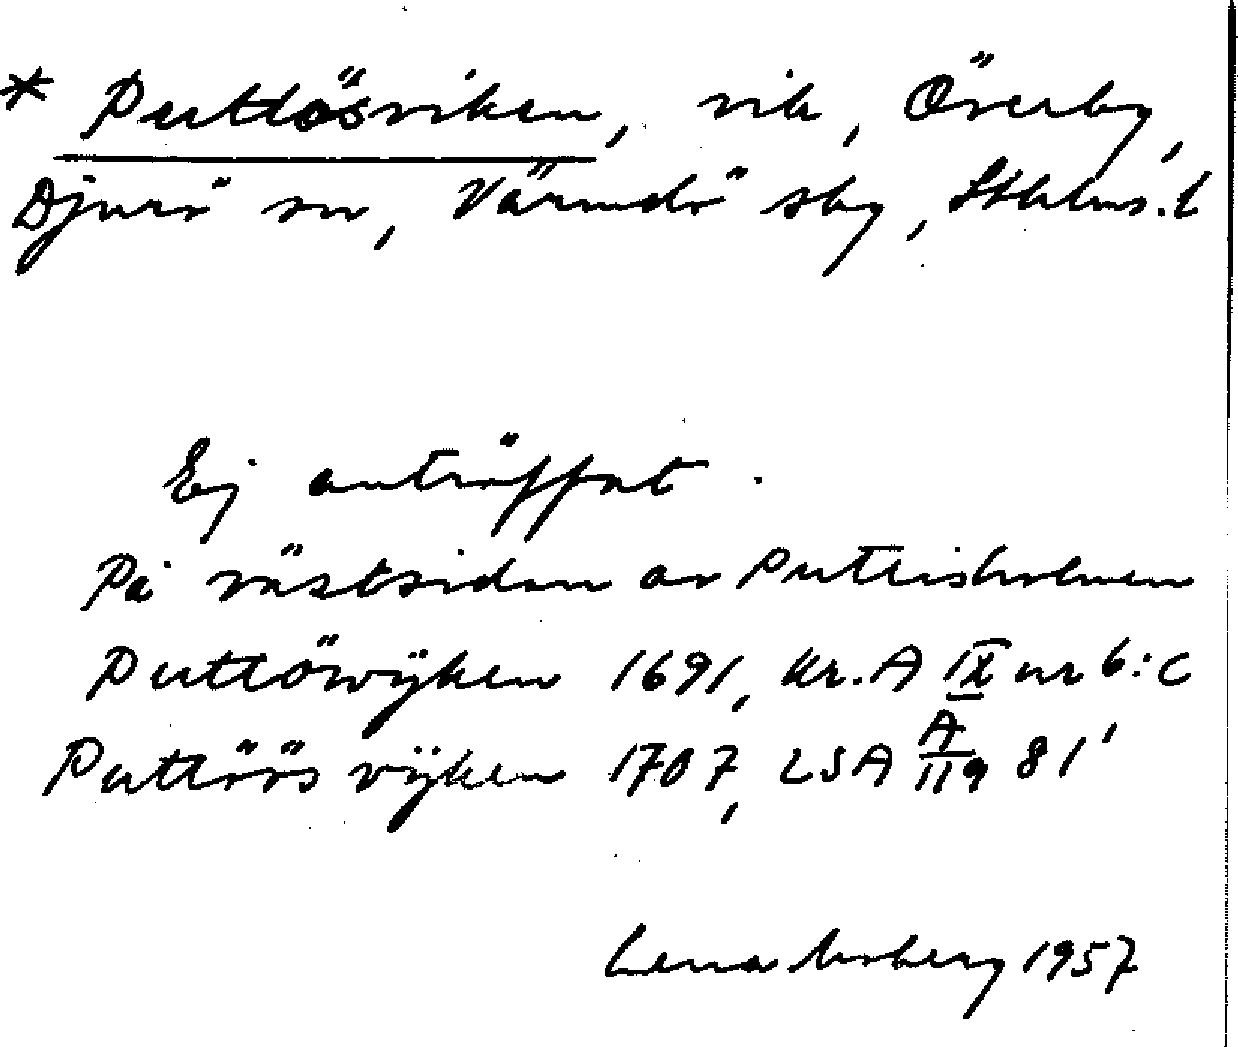 * Puttösviken, vik, Överby,
Djurö sn, Värmdö sbg, Sthlms. l
Ej anträffat.
På västsidan av Putteisholmen
Puttöwÿken 1691, Kr. A IX nr 6:C
Puttöösvÿken 1707, LSA A/119 81'
Lena Moberg 1957